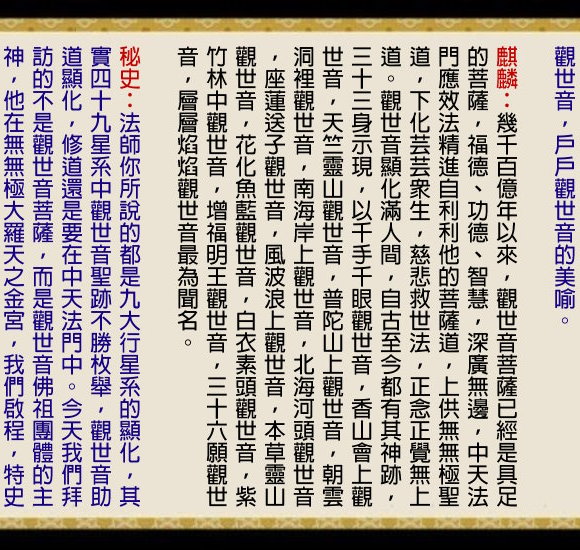 觀世音，戶戶觀世音的美喻。
麒麟：幾千百億年以來，觀世音菩薩已經是具足
的菩薩，福德、功德、智慧，深廣無邊，中天法
門應效法精進自利利他的菩薩道，上供無無極聖
道，下化芸芸眾生，慈悲救世法，正念正覺無上
道。觀世音顯化滿人間，自古至今都有其神跡，
三十三身示現，以千手千眼觀世音，香山會上觀
世音，天竺靈山觀世音，普陀山上觀世音，朝雲
洞裡觀世音，南海岸上觀世音，北海河頭觀世音
，座運送子觀世音，風波浪上觀世音，本草靈山
觀世音，花化魚籃觀世音，白衣素頭觀世音，紫
竹林中觀世音，增福明王觀世音，三十六願觀世
音，層層焰焰觀世音最為聞名。
秘史：法師你所說的都是九大行星系的顯化，其
實四十九星系中觀世音聖跡不勝枚舉，觀世音助
道顯化，修道還是要在中天法門中。今天我們拜
訪的不是觀世音菩薩，而是觀世音佛祖團體的主
神，他在無無極大羅天之金宮，我們啟程，特史